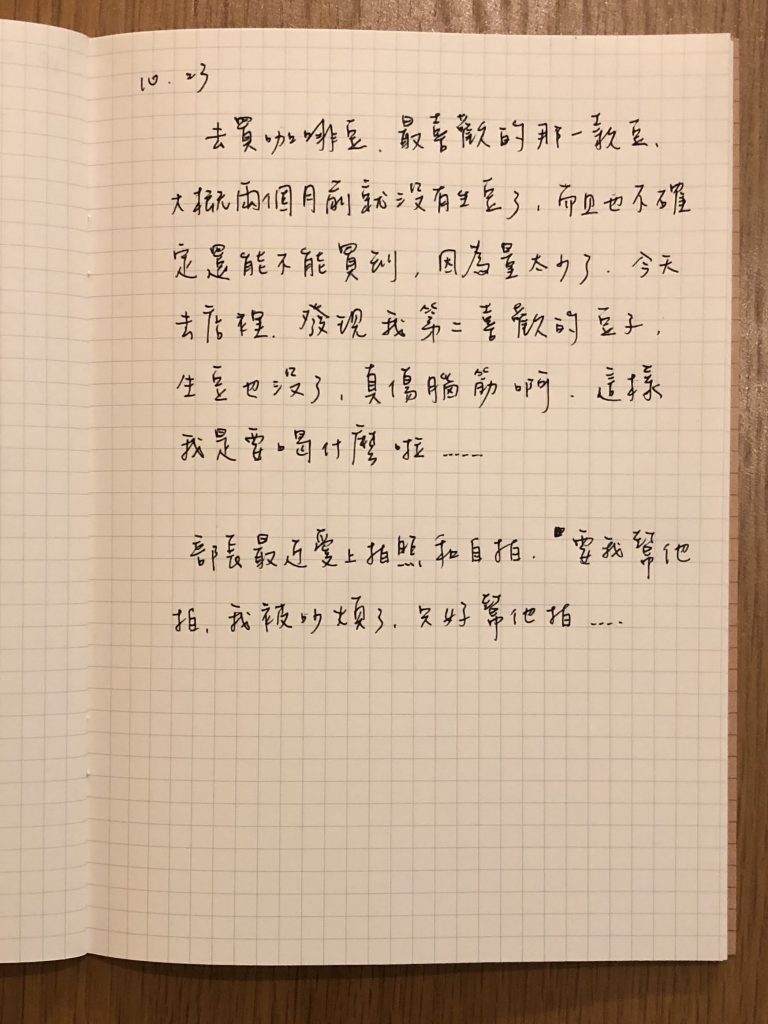 10.23
去買咖啡豆.最喜歡的那一款豆.
大概兩個月前就沒有生豆了,而且也不確
定還能不能買到,因為量太少了.今天
去店裡.發現我第二喜歡的豆子,
生豆也沒了,真傷腦筋啊.這樣
我是要喝什麼啦……
部長最近愛上拍照和自拍.要我幫他
拍,我被吵煩了,只好幫他拍……